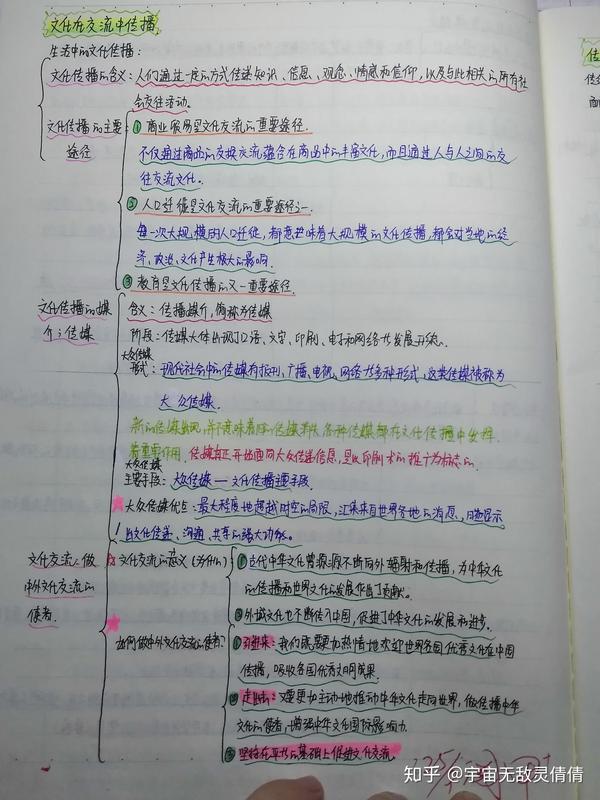 文化在交流中传播
生活中的文化传播：
文化传播的含义：人们通过一定的方式传递知识、信息、观念、情感和信仰，以及与此相关的所有社
会交往活动。
文化传播的主要
途径
①商业贸易是文化交流的重要途径.
不仅通过商品的交换交流蕴含在商品中的丰富文化，而且通过人与人之间的交
往交流文化.
②人口迁徙是文化交流的重要途径之一.
每一次大规模的人口迁徙，都意味着大规模的文化传播，都会对当地的经
济、政治、文化产生极大的影响.
③教育是文化传播的又一重要途径.
文化传播的媒
介：传媒
含义：传播媒介，简称为传媒
阶段：传媒大体从口语、文字、印刷、电子和网络
大众传媒
形式：现代社会中的传媒有报刊、广播、电视、网络等多种形式，这类传媒被称为
大众传媒.
新的传媒出现，并不意味着旧的传媒消失各种传媒都在文化传播中发挥
着重要作用.传媒真正开始面向大众传递信息，是以印刷术的推广为标志的
大众传媒
主要手段：大众传媒——文化传播主要手段.
大众传媒优点：最大程度地超越时空的局限，汇集来自世界各地的消息，日益显示
出文化传递、沟通、共享的强大功能。
文化交流：做
中外文化交流的
使者.
文化交流的意义
①古代中华文化曾源源不断向外辐射和传播，为中华文化
的传播和世界文化的发展作出了贡献。
②外域文化也不断传入中国，促进了中华文化的发展和进步.
如何做中外文化交流的使者：
①引进来：我们既要更加热情地欢迎世界各国优秀文化在中国
传播，吸收各国优秀文明成果.
②走出去：又要更加主动地推动中华文化走向世界，做传播中华
文化的使者，增强中华文化国际影响力.
③坚持在平等的基础上促进文化交流.
知乎 @宇宙无敌灵倩倩